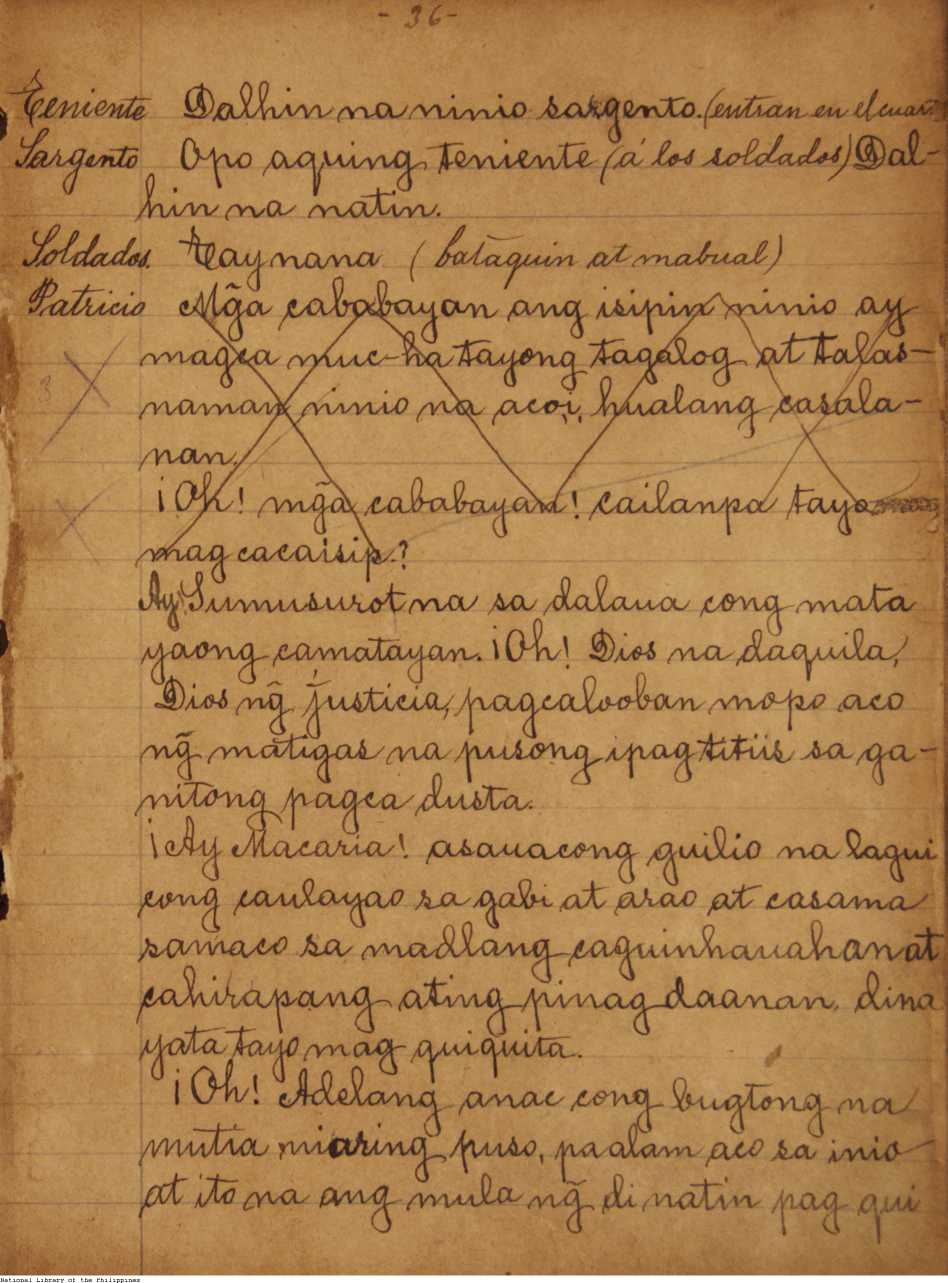 - 36 -
Teniente Dalhin na ninio sargento. (entran en el cuart
Sargento Opo aquing teniente (á los soldados) Dal-
hin na natin.
Soldados. Tay nana (batāquin at mabual)
Patricio Mg̃a cababayan ang isipin ninio ay
magca muc-ha tayong tagalog at talas-
naman ninio na acoi, hualang casala-
nan.
3
¡Oh! mg̃a cababayan! cailanpa tayo
mag cacaisip.?
Ay! Sumusurot na sa dalaua cong mata
yaong camatayan. ¡Oh! Dios na daquila,
Dios ng̃ justicia, pagcalooban mopo aco
ng̃ matigas na pusong ipagtitiis sa ga-
nitong pagca dusta.
¡Ay Macaria! asauacong guilio na lagui
cong caulayao sa gabi at arao at casama
samaco sa madlang caguinhauahan at
cahirapang ating pinag daanan, dina
yata tayo mag quiquita.
¡Oh! Adelang anac cong bugtong na
mutia niaring puso, paalam aco sa inio
at ito na ang mula ng̃ di natin pag qui
National Library of the Philippines